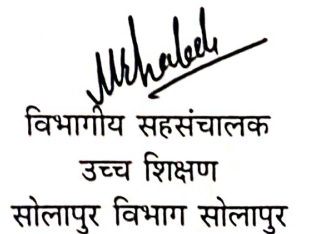 विभागीय सहसंचालक
उच्च शिक्षण
सोलापुर विभाग सोलापुर